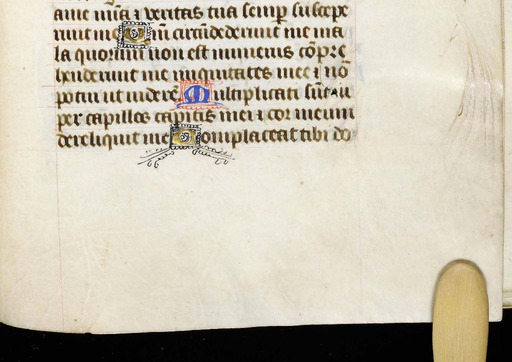 a me mīa t veritas tua semp suscepe
runt me Qm̄ circūdederunt me ma
la quorum non est numerus cōpre
henderunt me iniquitates mee t nō
potui ut viderē Multiplicati sūt su
per capillos capitis mei t cor meum
dereliquit me Complaceat tibi do